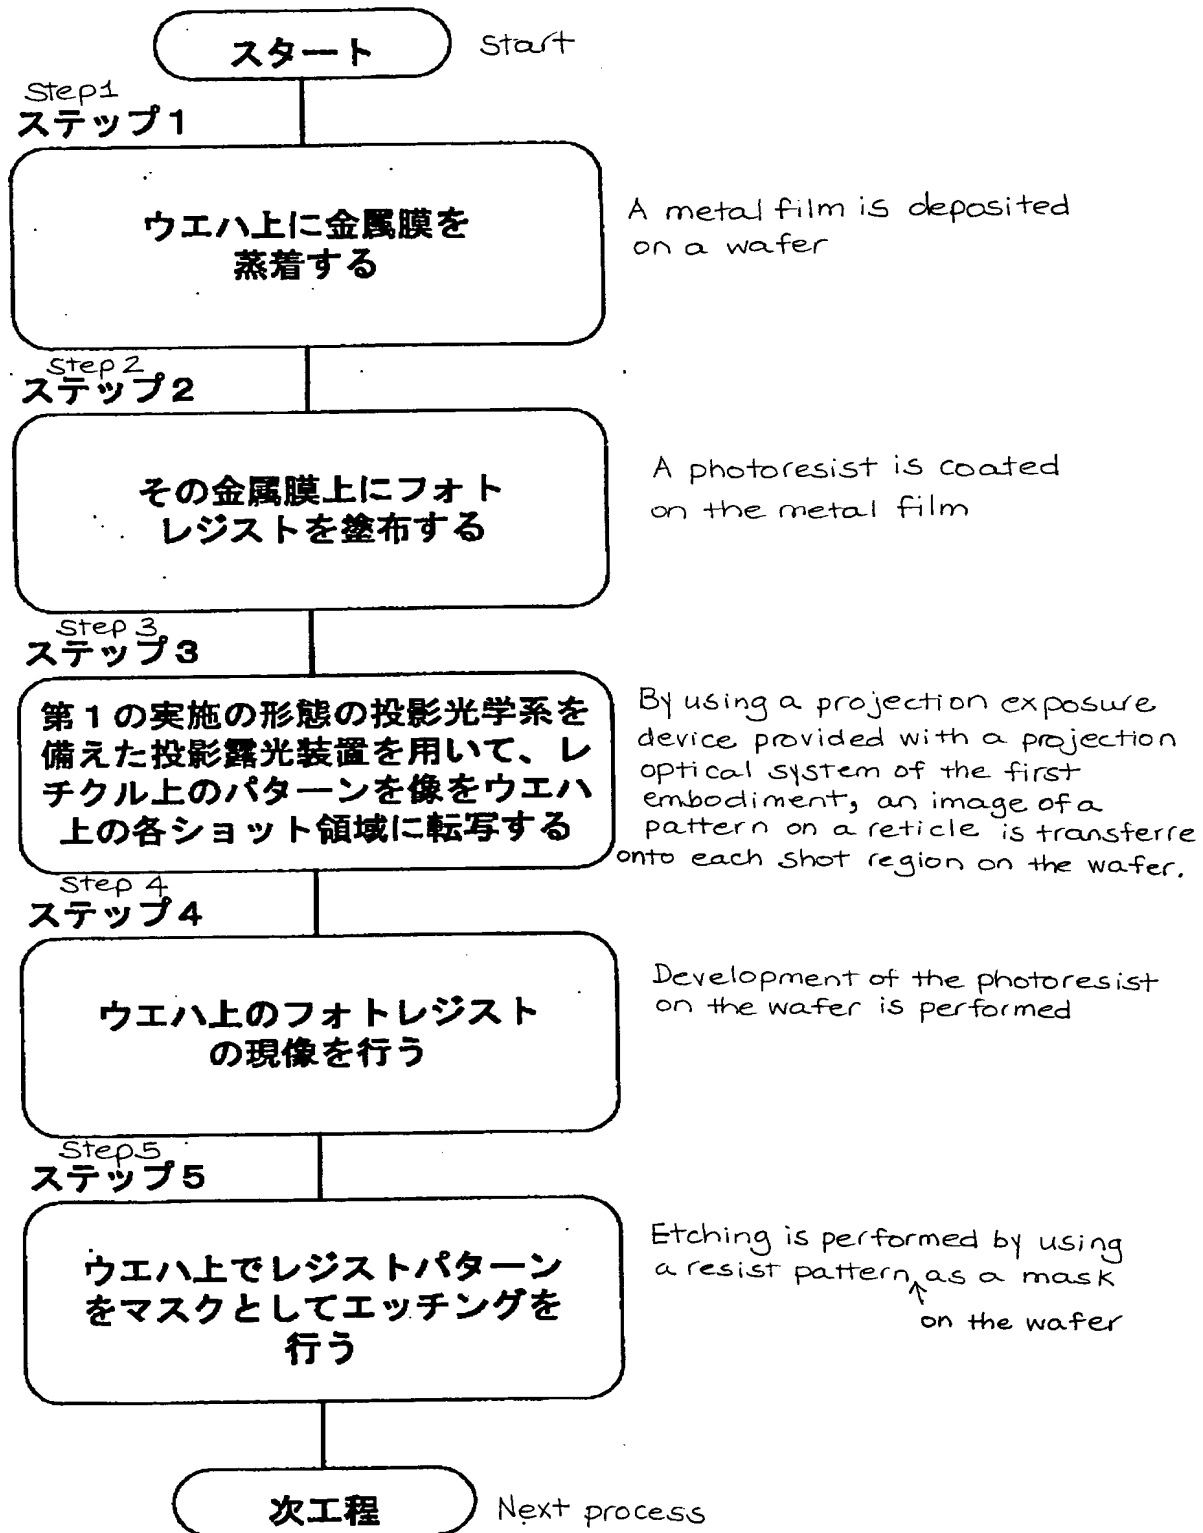 スタート
Start
Step1
ステップ1
ウエハ上に金属膜を
蒸着する
A metal film is deposited
on a wafer
Step 2
ステップ2
その金属膜上にフォト
レジストを塗布する
A photoresist is coated
on the metal film
Step 3
ステップ3
第1の実施の形態の投影光学系を
備えた投影露光装置を用いて、レ
チクル上のパターンを像をウエハ
上の各ショット領域に転写する
By using a projection exposure
device provided with a projection
optical system of the first
embodiment, an image of a
pattern on a reticle is transferre
onto each shot region on the wafer.
Step 4
ステップ4
ウエハ上のフォトレジスト
の現像を行う
Development of the photoresist
on the wafer is performed
Step5
ステップ5
ウエハ上でレジストパターン
をマスクとしてエッチングを
行う
Etching is performed by using
a resist pattern as a mask
on the wafer
次工程
Next process